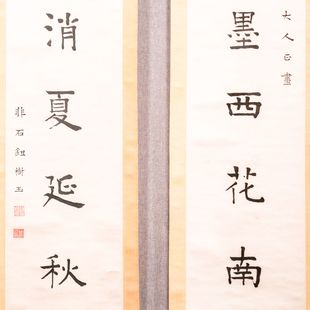 大人正畫
墨西花南
消夏延秋
非石鈕樹玉